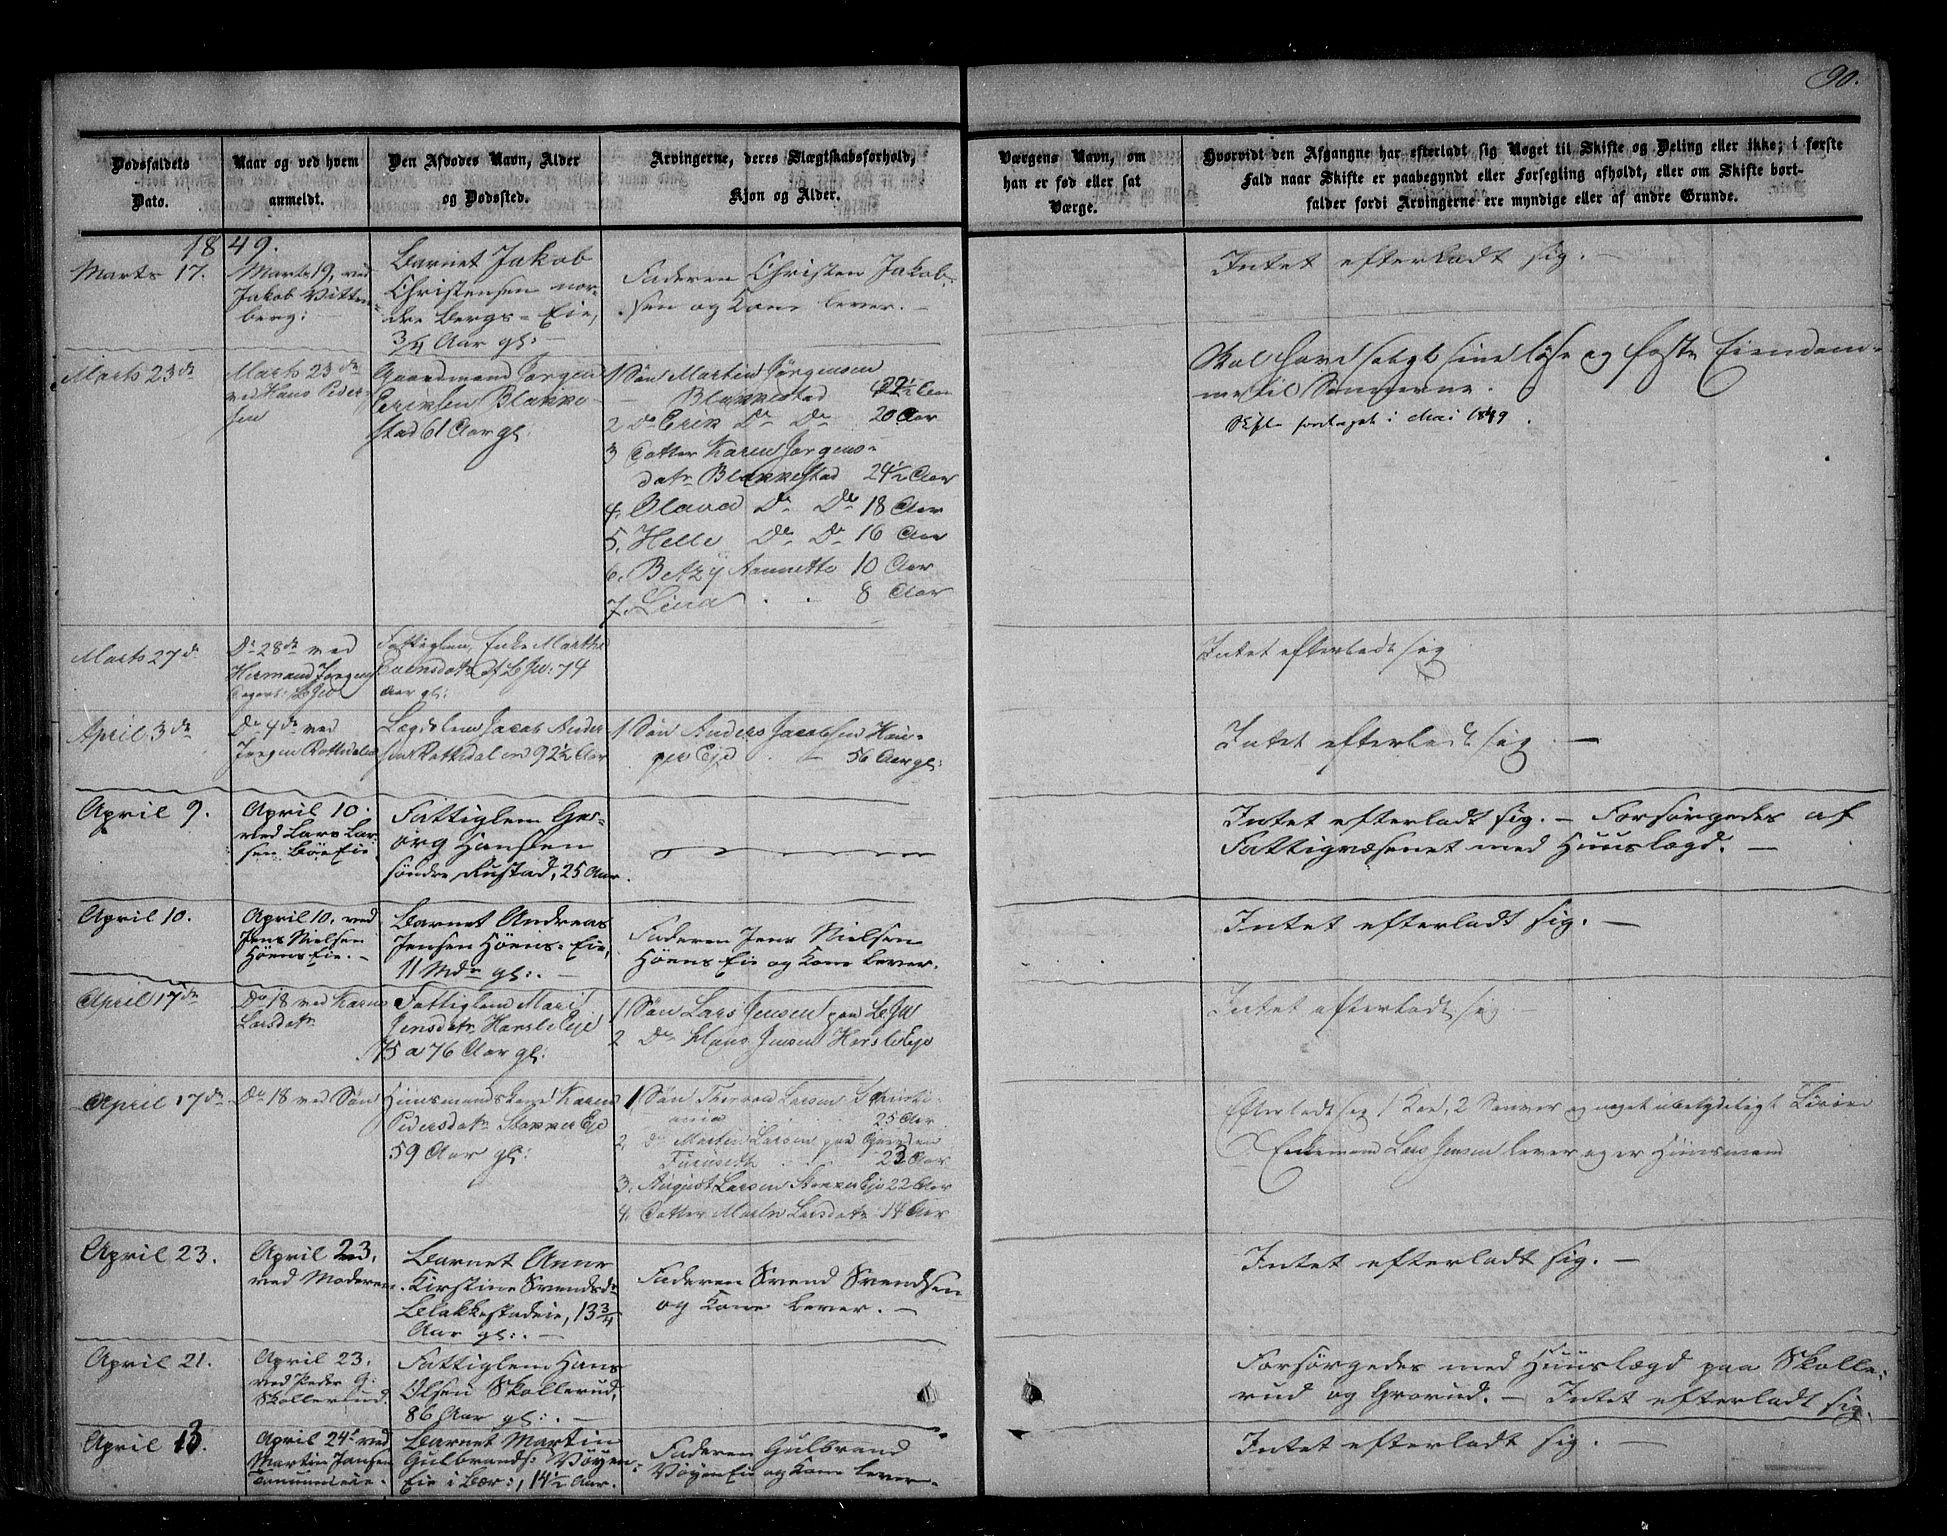 90.
Dødsfaldets
Dato.
Naar og ved hvem
anmeldt.
Den Afdødes Navn, Alder
og Dødssted.
Arvingerne, deres Slægtskabsforhold,
Kjøn og Alder.
Værgens Navn, om
han er fød eller sat
Værge.
Hvorvidt den Afgangne har efterladt sig Noget til Skifte og Deling eller ikke; i første
Fald naar Skifte er paabegyndt eller Forsegling afholdt, eller om Skifte bort-
falder fordi Arvingerne ere myndige eller af andre Grunde.
1849.
Marts 17.
Marts 19, ved
Jakob Vitten-
berg:
Barnet Jakob
Christensen nor-
dre Bergs-Eie,
3/4 Aar gl:
Faderen Christen Jakob-
sen og Kone lever. -
Intet efterladt sig. -
Marts 23de
Marts 23de
ved Hans Peder-
sen
Gaardmand Jørgen
Eriksen Blakke-
stad 61 Aar gl:
1 Søn Martin Jørgensen
Blakkestad 22½ Aar
2 Do Erik Do Do 20 Aar
3 Datter Karen Jørgens-
datr Blakkestad 24½ Aar
4. Olava Do Do 18 Aar
5. Helle Do Do 16 Aar
6. Betzy Annette 10 Aar
7. Lina 8 Aar
Skal have solgt sine løse og faste Eiendom-
me til Sønnerne.
Skifte foretaget i Mai 1849.
Marts 27de
Do 28de ved
Hermand Jørgens:
Fattiglem, Enke Marthe
Evensdatr 74
Aar gl:
Intet efterladt sig
April 3de
Do 4de ved
Jørgen Rottedalen
Lægdslem Jacob Ander
sen Rottedalen 92½ Aar
1 Søn Anders Jacobsen
Eje 56 Aar gl:
Intet efterladt sig -
April 9.
April 10.
ved Lars Lar-
sen Bøe Eie.
Fattiglem Ge-
org Hansen
søndre Rustad, 25 Aar.
Intet efterladt sig. - Forsørgedes af
Fattigvæsenet med Huuslægd. -
April 10.
April 10. ved
Jens Nielsen
Høens Eie. -
Barnet Andreas
Jensen Høens-Eie,
11 Mdr gl:. -
Faderen Jens Nielsen
Høens Eie og Kone lever.
Intet efterladt sig. -
April 17de
Do 18 ved Karen
Larsdatr
Fattiglem Mari
Jensdatr Harsle Eje
75 a 76 Aar gl:
1 Søn Lars Jensen paa
2 Do Hans Jensen Harsle Eje
Intet efterladt sig. -
April 17de
Do 18 ved Søn
Huusmandskone Karen
Pedersdatr Stokker Eje
59 Aar gl:
1 Søn Thorvald Larsen Christi-
ania 25 Aar
2. Do Martin Larsen paa Gaarden
Furuseth 23 Aar
3. August Larsen Stokker Eje 22 Aar
4. Datter Larsdatr 14 Aar
Efterladt sig 1 Koe, 2 Sauer og noget ubetydeligt
Enkemand Lars Jensen lever og er Huusmand
April 23.
April 23.
ved Moderen
Barnet Anne
Kirstine Svendsdr
Blakkestadeie, 13¾
Aar gl:. -
Faderen Svend Svendsen
og Kone lever. -
Intet efterladt sig. -
April 21.
April 23.
ved Peder G:
Skollerud.
Fattiglem Hans
Olsen Skollerud,
86 Aar gl:. -
Forsørgedes med Huuslægd paa Skolle-
rud og Grorud. - Intet efterladt sig.
April 13.
April 24de ved
Martin Jansen
Barnet Martin
Gulbrands: Vøyen-
Eie i Bær:, 14½ Aar.
Faderen Gulbrand
Vøyen Eie og Kone lever.
Intet efterladt sig. -